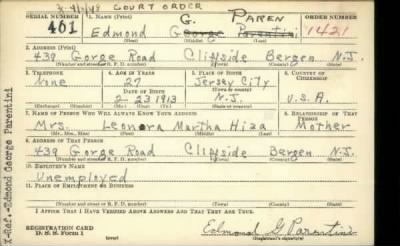 X 4/1/48 COURT ORDER
SERIAL NUMBER 1. NAME (Print) G. PAREN ORDER NUMBER
461 Edmond George Parentini 1421
2. ADDRESS (Print)
439 Gorge Road Cliffside Bergen N.J.
3. TELEPHONE 4. AGE IN YEARS 5. PLACE OF BIRTH 6. COUNTRY OF CITIZENSHIP
None 27 Jersey City
DATE OF BIRTH
2-23-1913 N.J. U.S.A.
7. NAME OF PERSON WHO WILL ALWAYS KNOW YOUR ADDRESS 8. RELATIONSHIP OF THAT PERSON
Mrs. Leonora Martha Hiza Mother
9. ADDRESS OF THAT PERSON
439 Gorge Road Cliffside Bergen N.J.
10. EMPLOYER'S NAME
Unemployed
11. PLACE OF EMPLOYMENT OR BUSINESS
I AFFIRM THAT I HAVE VERIFIED ABOVE ANSWERS AND THAT THEY ARE TRUE.
REGISTRATION CARD
D. S. S. Form 1
Edmond G Parentini
(Registrant's signature)
X-Ref.-Edmond George Parentini